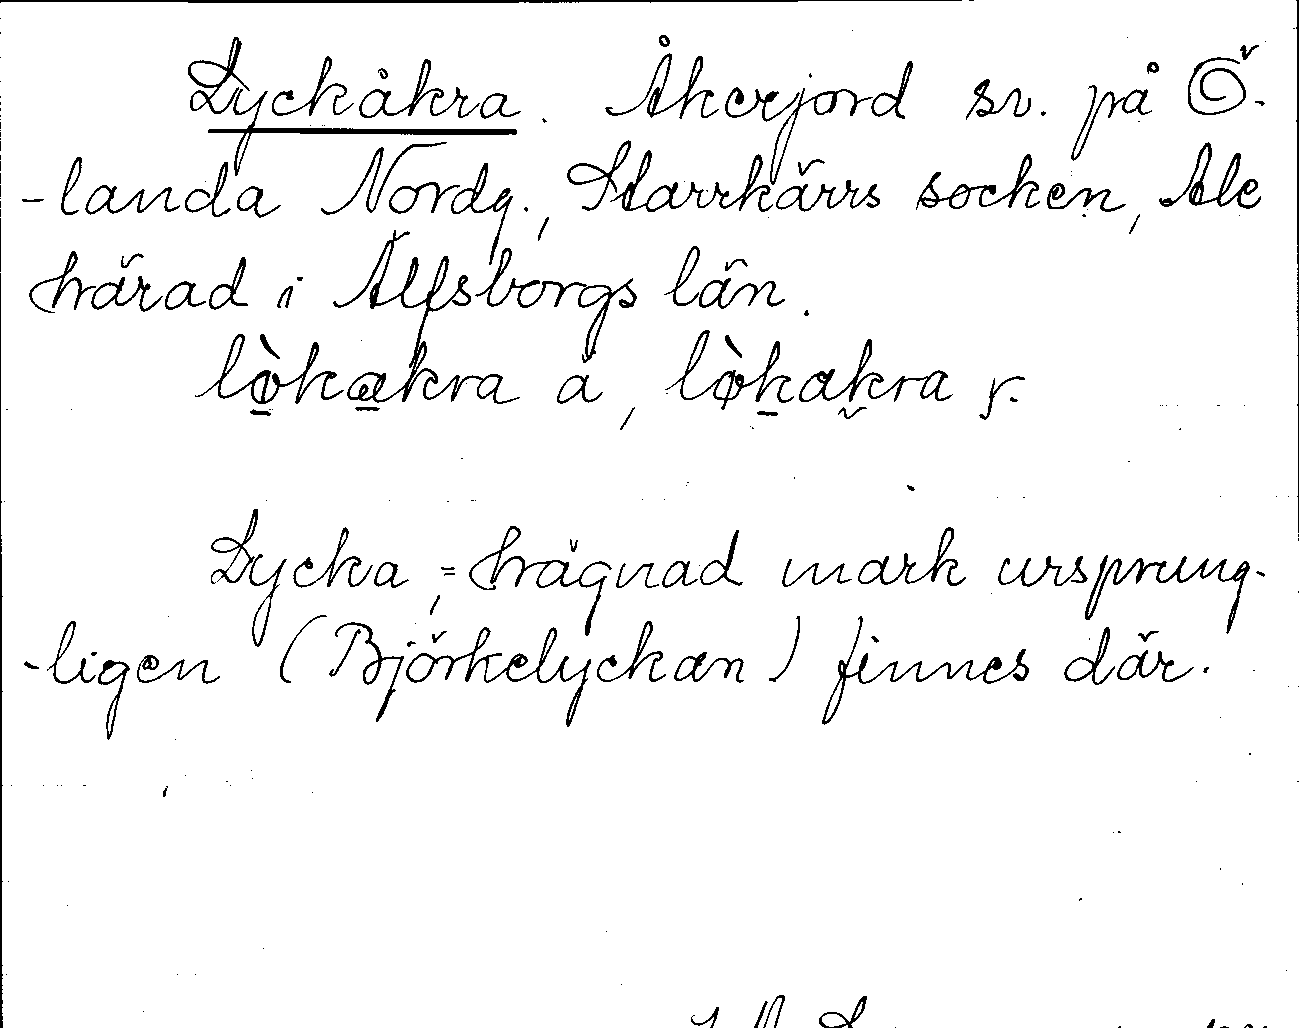 Lyckåkra. Åkerjord sv. på Ö-
-landa Nordg., Starrkärrs socken, Ale
härad i Älfsborgs län.
lø̀kakra ä, lø̀kakra y.
Lycka, = hägnad mark ursprung-
-ligen (Björkelyckan) finnes där.